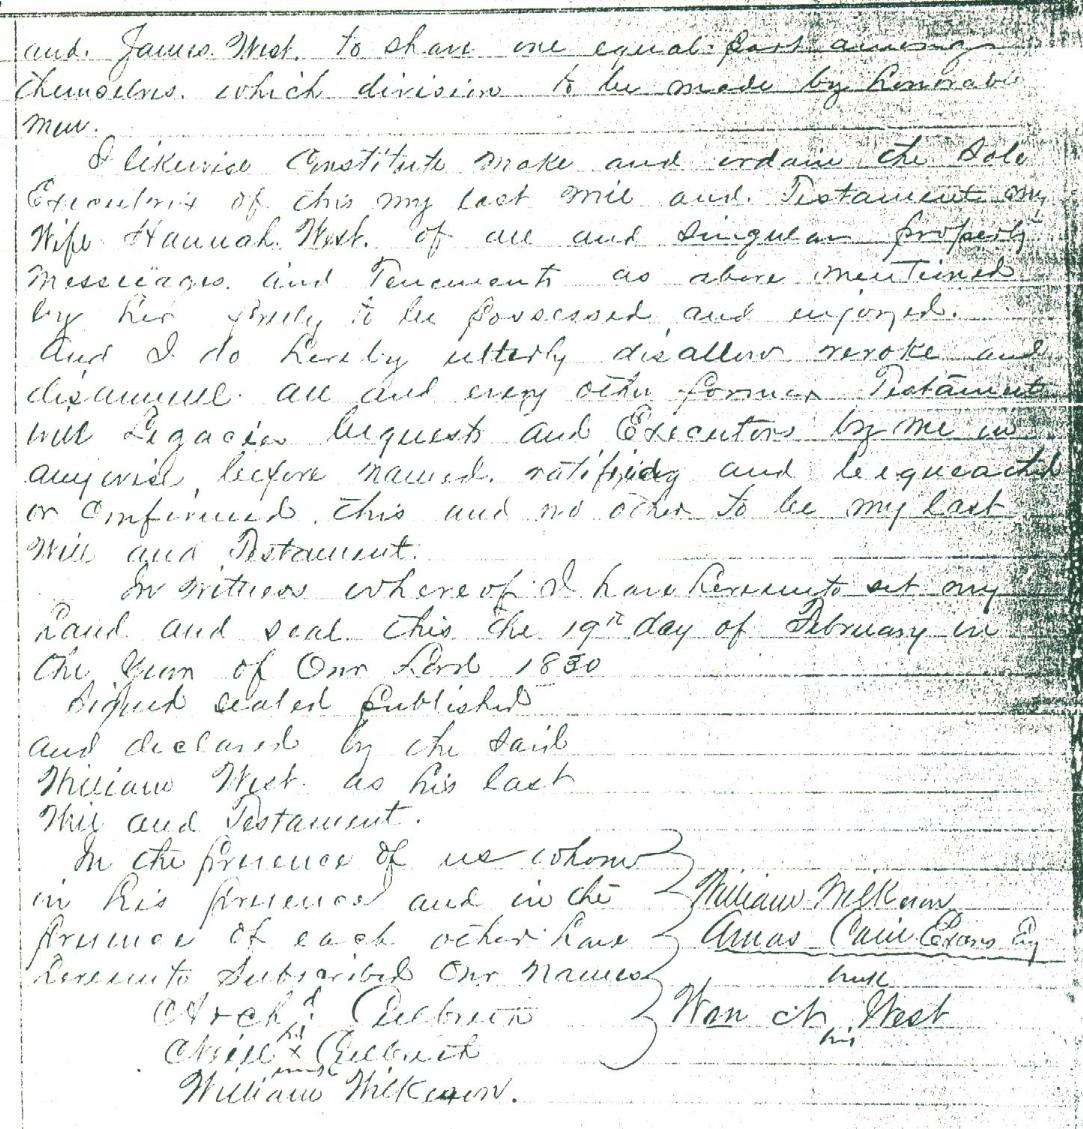 and. James. West. to share one equal part among
themselves. which division to be made by honorable
men.
I likewise Constitute make and ordain the Sole
Executrix of this my last Will and. Testament my
Wife Hannah. West. of all and Singular property
Messuages. and Tenements as above mentioned
by her freely to be possessed and enjoyed.
And I do hereby utterly disallow revoke and
disannull. all and every other former Testament
will Legacies bequests and Executors by me in
anywise before named. ratifying and bequeathed
or Confirmed this and no other to be my last
Will and Testament.
In Witness whereof I have hereunto set my
hand and seal this the 19th day of February in
the Year of Our Lord 1830
Signed sealed published
and declared by the Said
William West. as his last
Will and Testament.
In the presence of us whom
in his presence and in the
presence of each other have
hereunto Subscribed Our names
William Wilkerson
Amas Cain
mark
Wm West
his
Archd Culbreth
his
Neill x Culbreth
mark
William Wilkerson.